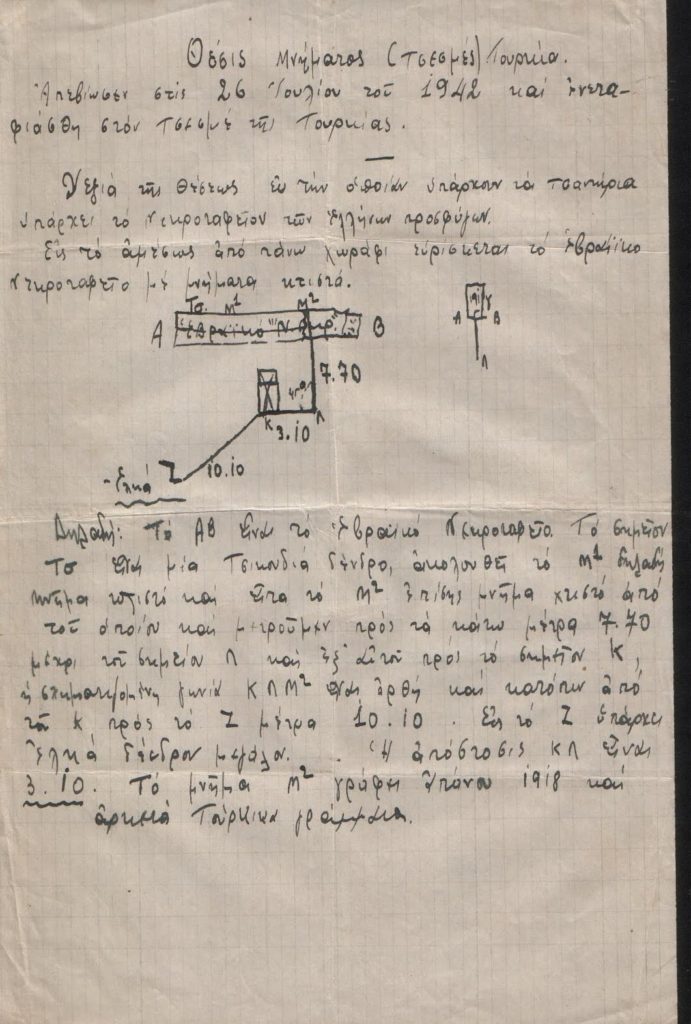 Θέσις Μνήματος (Τσεσμές) Τουρκία.
Ἀπεβίωσεν στίς 26 Ἰουλίου τοῦ 1942 καί ἐνετα-
φιάσθη στόν Τσεσμέ τῆς Τουρκίας.
Δεξιά τῆς θέσεως εἰς τήν ὁποίαν ὑπάρχουν τά τσαντήρια
ὑπάρχει τό Νεκροταφεῖον τῶν Ἑλλήνων προσφύγων.
Εἰς τό ἀμέσως ἀπό πάνω χωράφι εὑρίσκεται τό Ἑβραϊκο
Νεκροταφεῖο μέ μνήματα κτιστά.
Τσ. Μ1 Μ2
Α "Ἑβραϊκό Νεκρ." Β
Α Β
Λ
7.70
Κ Λ
3.10
10.10
Ἐλκά Ζ
Δηλαδή: Τό ΑΒ εἶναι τό Ἑβραϊκό Νεκροταφεῖο. Τό σημεῖον
Τσ εἶναι μία Τσικουδιά δένδρο, ἀκολουθεῖ τό Μ1 δηλαδή
μνῆμα κτιστό καί εἶτα τό Μ2 ἐπίσης μνῆμα χτιστό ἀπό
τοῦ ὁποίου καί μετροῦμεν πρός τά κάτω μέτρα 7.70
μέχρι τοῦ σημείου Λ καί ἐξ αὐτοῦ πρός τό σημεῖον Κ,
ἡ σχηματιζομένη γωνία ΚΛΜ2 εἶναι ὀρθή καί κατόπιν ἀπό
τοῦ Κ πρός τό Ζ μέτρα 10.10. Εἰς τό Ζ ὑπάρχει
Ἐλκά δένδρον μεγάλον. Ἡ ἀπόστασις ΚΛ εἶναι
3.10. Τό μνῆμα Μ2 γράφει ἐπάνου 1918 καί
ἀρκετά Τούρκικα γράμματα.